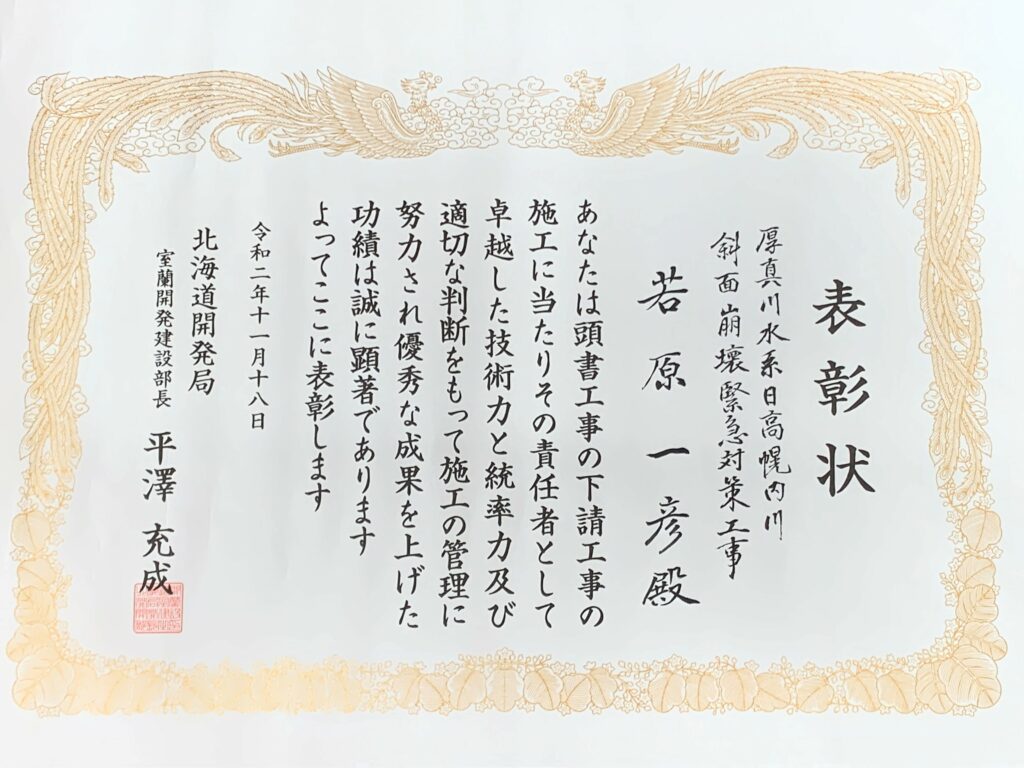 表彰状
厚真川水系日高幌内川
斜面崩壊緊急対策工事
若原一彦殿
あなたは頭書工事の下請工事の
施工に当たりその責任者として
卓越した技術力と統率力及び
適切な判断をもって施工の管理に
努力され優秀な成果を上げた
功績は誠に顕著であります
よってここに表彰します
令和二年十一月十八日
北海道開発局
室蘭開発建設部長 平澤充成